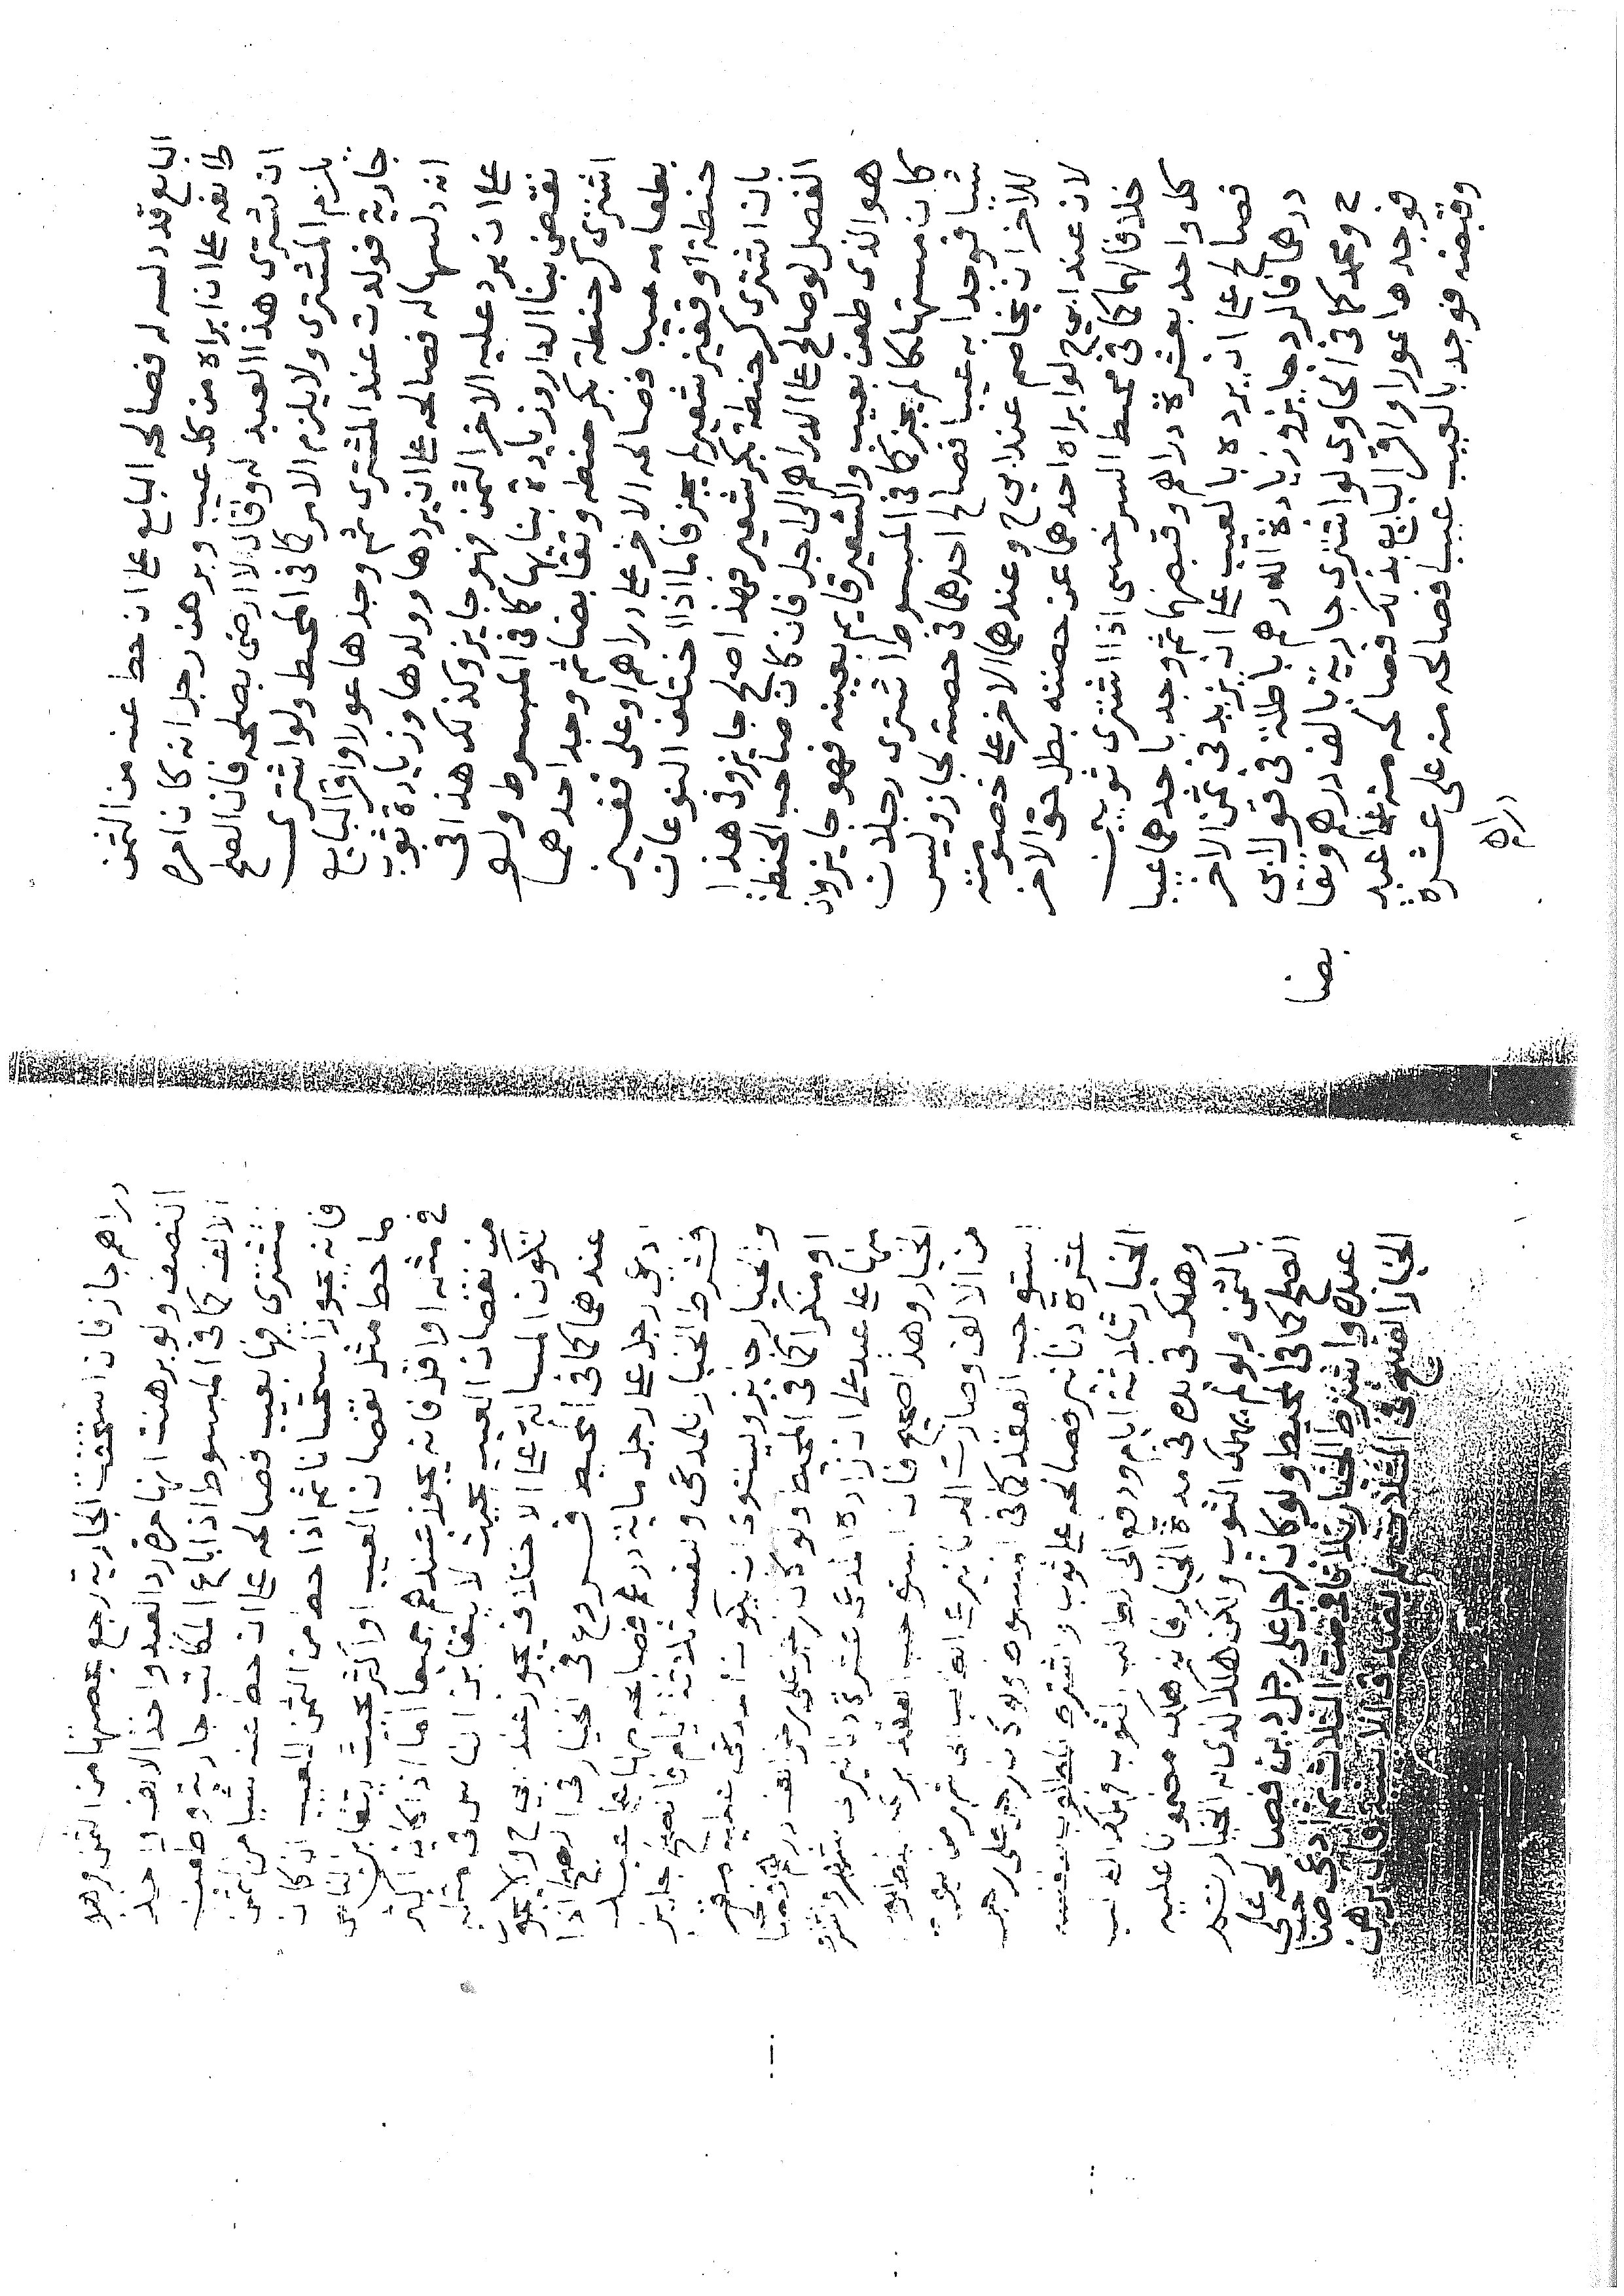 البايع قد دلسه له فصالحه البايع على ان حط عنه من الثمن
طائفه على ان ابراه من كل عيب وبرهن رجل انه كان امره
ان تشترى هذا العبد له وقال لا ارضى بصلحه فان الصلح
يلزم المشترى ولا يلزم الامر كما فى المحيط ولو اشترى
جارية فولدت عند المشترى ثم وجدها عورا واقر البايع
انه دلسها له فصالحه على ان يردها وولدها وزيادة ثوب
على ان يرد عليه الاخر الثمن فهو جايز وكذلك هذا فى
نقض بنا الدار وزيادة بنايها كما فى المبسوط ولو
اشترى كر حنطة بكر حنطه وتقابضا ثم وجد احدهما
بطعامه عيبا فصالحه الاخر على دراهم او على قفيز
حنطة او قفيز شعير لم يجز فاما اذا اختلف النوعان
بان اشترى كر حنطة بكر شعير فهذا صلح جايز وفى هذا
الفصل لو صالح على الدراهم الى اجل فان كان صاحب الحنطة
هو الذى طعن بعيب والشعير قايم بعينه فهو جايز وان
كان مستهلكا لم يجز كما فى المبسوط اشترى رجلان
شيا فوجدا به عيبا فصالح احدهما فى حصته جاز وليس
للاخر ان يخاصم عند ابي ح وعندهما الاخر على خصومته
لان عند ابي ح لو ابراه احدهما عن حصته بطل حق الاخر
خلافا لهما كما فى محيط السرخسى اذا اشترى ثوبين
كل واحد بعشرة دراهم وقبضهما ثم وجد باحدهما عيبا
فصالح على ان يرده بالعيب على ان يزيد فى ثمن الاخر
درهما فالرد جايز وزيادة الدرهم باطلة فى قول ابى
ح ومحمد كما فى الحاوى لو اشترى جارية بالف درهم وتقا
بضا
فوجدها عورا واقر البايع بذلك فصالحه منه على عبد
وقبضه فوجد بالعيب عيبا فصالحه منه على عشرة
دراهم
دراهم جاز فان استحقت الجارية رجع بحصتها من الثمن وهو
النصف ولو برهنت انها حرة رد العبد واخذ الالف
الالف كما فى المبسوط اذا باع المكاتب جارية وطعن
مشتري فيها بعيب فصالحه على ان حط عنه شيا من الثمن
فانه يجوز استحسانا ثم اذا حط من الثمن للعيب ان كان
ما حط مثل نقصان العيب او اكثر بحيث يتغابن الناس
فى مثله او اقل فانه يجوز عندهم جميعا اما اذا كان اكثر
من نقصان العيب بحيث لا يتغابن الناس فى مثله
تكون المسالة على الاختلاف يجوز عند ابي ح ولا يجوز
عندهما كما فى المحيط فروع فى الخيار فى الصلح اذا
ادعى رجل على رجل ماية درهم فصالحه منها على عبد
وشرط الخيار للمدعى او لنفسه ثلاثة ايام فالصلح جايز
والخيار جايز ويستوى ان يكون المدعى عليه مقرا
او منكرا كما فى المحيط ولو كان رجل على رجل الف درهم فصالحه
منها على عبد على ان زاده المدعى عشرة دنانير الى شهر وشرط
الخيار وهذا صحيح فان استوجب العقد برى المطلوب
من الالف وصارت الدنانير على الطالب الى شهر من يوم
استوجب العقد كما فى المبسوط ولو كان لرجل على رجل
عشرة دنانير فصالحه على ثوب واشترط المطلوب لنفسه
الخيار ثلاثة ايام ودفع الى الطالب الثوب فهلك عند الطالب
وهلك فى يده فى مدة الخيار فانه هلك مضمونا عليه
بالثمن ولو لم يهلك الثوب ولكن هلك الذى له الخيار تم
الصلح كما فى المحيط ولو كان لرجل على رجل دين فصالحه على
عبد واشترط الخيار ثلاثا فمضت الثلاث ثم ادعى صاحب
الخيار الفسخ فى الثلاث لم يصدق الا ببينة فان برهن